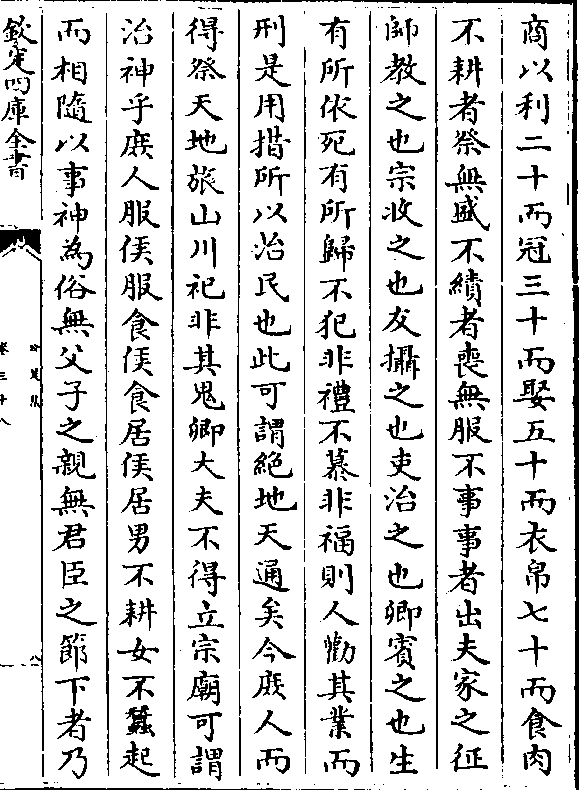 商以利二十而冠三十而娶五十而衣帛七十而食肉
不耕者祭無盛不績者喪無服不事事者出夫家之征
師教之也宗收之也友攝之也吏治之也卿賓之也生
有所依死有所歸不犯非禮不慕非福則人勸其業而
刑是用措所以治民也此可謂絶地天通矣今庶人而
得祭天地旅山川祀非其鬼卿大夫不得立宗廟可謂
治神乎庶人服侯服食侯食居侯居男不耕女不蠶起
而相隨以事神為俗無父子之親無君臣之節下者乃
欽定四庫全書
卷三十八